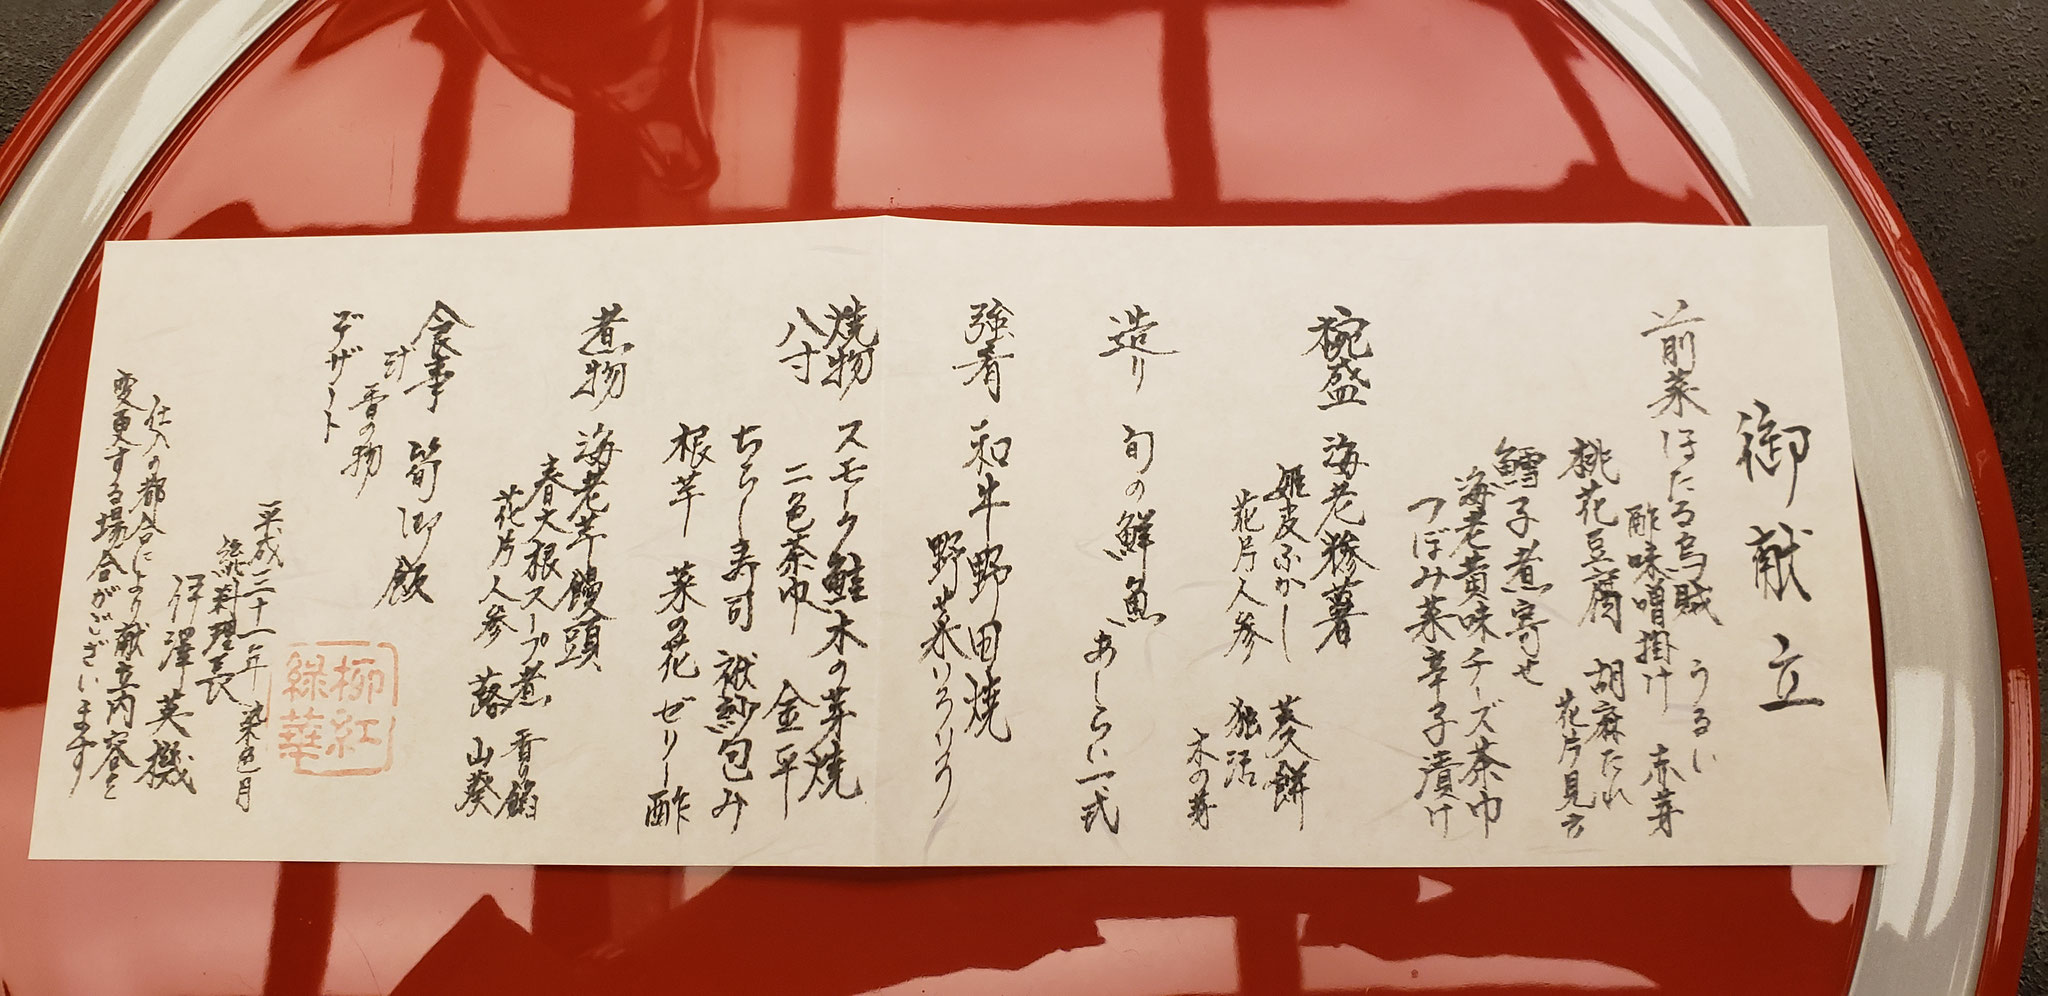 御献立
前菜 ほたる烏賊 うるい
酢味噌掛け 赤芽
桃花豆腐 胡麻たれ
花片見立
鱈子煮寄せ
海老黄味チーズ茶巾
つぼみ菜辛子漬け
椀盛 海老糝薯 葵餅
姫麦ふかし 独活
花片人参 木の芽
造り 旬の鮮魚 あしらい一式
強肴 和牛野田焼
野菜いろいろ
焼物 スモーク鮭木の芽焼
八寸 二色茶巾 金平
ちらし寿司 袱紗包み
根芋 菜の花 ゼリー酢
煮物 海老芋饅頭
春大根スープ煮 香り餡
花片人参 蕗 山葵
食事 筍御飯
汁
香の物
デザート
平成三十一年 染色月
流 料理長
伊澤 英機
仕入の都合により献立内容を
変更する場合がございます
柳紅
緑華